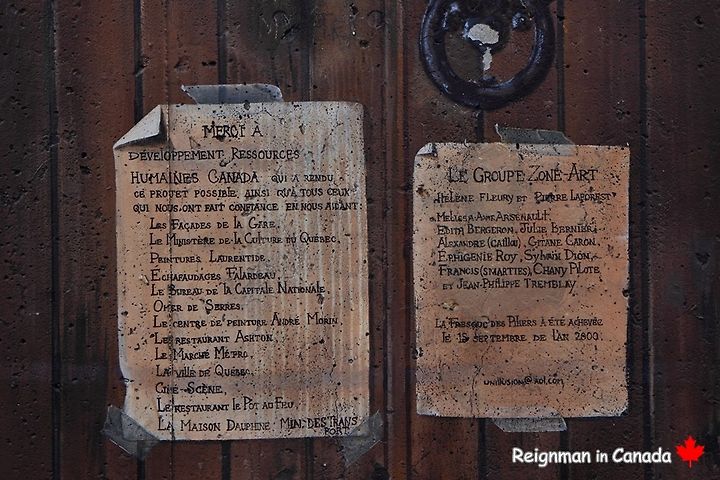 MERCI A
DÉVELOPPEMENT RESSOURCES
HUMAINES CANADA QUI A RENDU
CE PROJET POSSIBLE AINSI QU'À TOUS CEUX
QUI NOUS ONT FAIT CONFIANCE EN NOUS AIDANT:
LES FAÇADES DE LA GARE.
LE MINISTÈRE DE LA CULTURE DU QUÉBEC.
PEINTURES LAURENTIDE.
ECHAFAUDAGES FALARDEAU.
LE BUREAU DE LA CAPITALE NATIONALE.
OMER DE SERRES.
LE CENTRE DE PEINTURE ANDRÉ MORIN.
LES RESTAURANT ASHTON.
LE MARCHÉ MÉTRO.
LA VILLE DE QUÉBEC.
CINÉ-SCÈNE.
LE RESTAURANT LE POT AU FEU.
LA MAISON DAUPHINE MIN. DES TRANS
PORT
LE GROUPE ZONE-ART
HÉLÈNE FLEURY ET PIERRE LAFOREST
MELISSA-ANNE ARSENAULT.
EDITH BERGERON, JULIE BERNIER,
ALEXANDRE (CAILLU), GITANE CARON,
EPHIGENIE ROY, SYLVAIN DION,
FRANCIS (SMARTIES), CHANY PILOTE
ET JEAN-PHILIPPE TREMBLAY
LA FRESQUE DES PILIERS A ÉTÉ ACHEVÉE
LE 15 SEPTEMBRE DE L'AN 2000.
unillusion@aol.com
Reignman in Canada